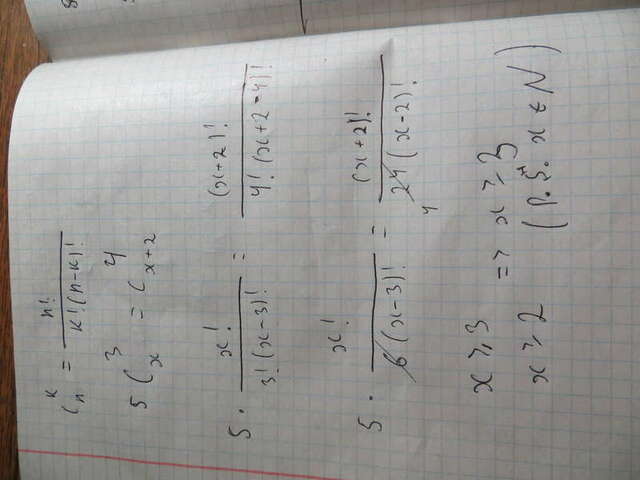 C_n^k = n! / k!(n-k)!
5 C_x^3 = C_{x+2}^4
5 · x! / 3!(x-3)! = (x+2)! / 4!(x+2-4)!
5 · x! / 6(x-3)! = (x+2)! / 24(x-2)!
4
x ≥ 3 => x ≥ 3
x ≥ 2 (P.S. x ∈ N)